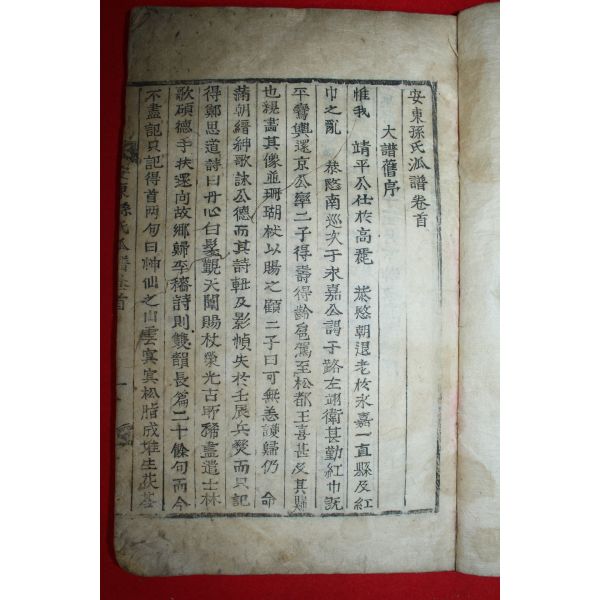 安東孫氏派譜卷首
大譜舊序
惟我 靖平公仕於高麗 恭愍朝退老於永嘉一直縣及紅
巾之亂 恭愍南巡次于永嘉公謁于路左翊衛甚勤紅巾旣
平鸞輿還京公率二子得壽得齡扈駕至松都王喜甚及其歸
也親畵其像並珊瑚杖以賜之顧二子曰可無恙護歸仍 命
滿朝縉紳歌詠公德而其詩軸及影幀失於壬辰兵燹而只記
得鄭思道詩曰丹心白髮覲天闕賜杖榮光古所稀盡遣士林
歌碩德手扶還向故鄕歸李穡詩則雙韻長篇二十餘句而今
不盡記只記得首两句曰神仙之山雲冥冥松脂成堆生茯苓
安東孫氏派譜卷首
一